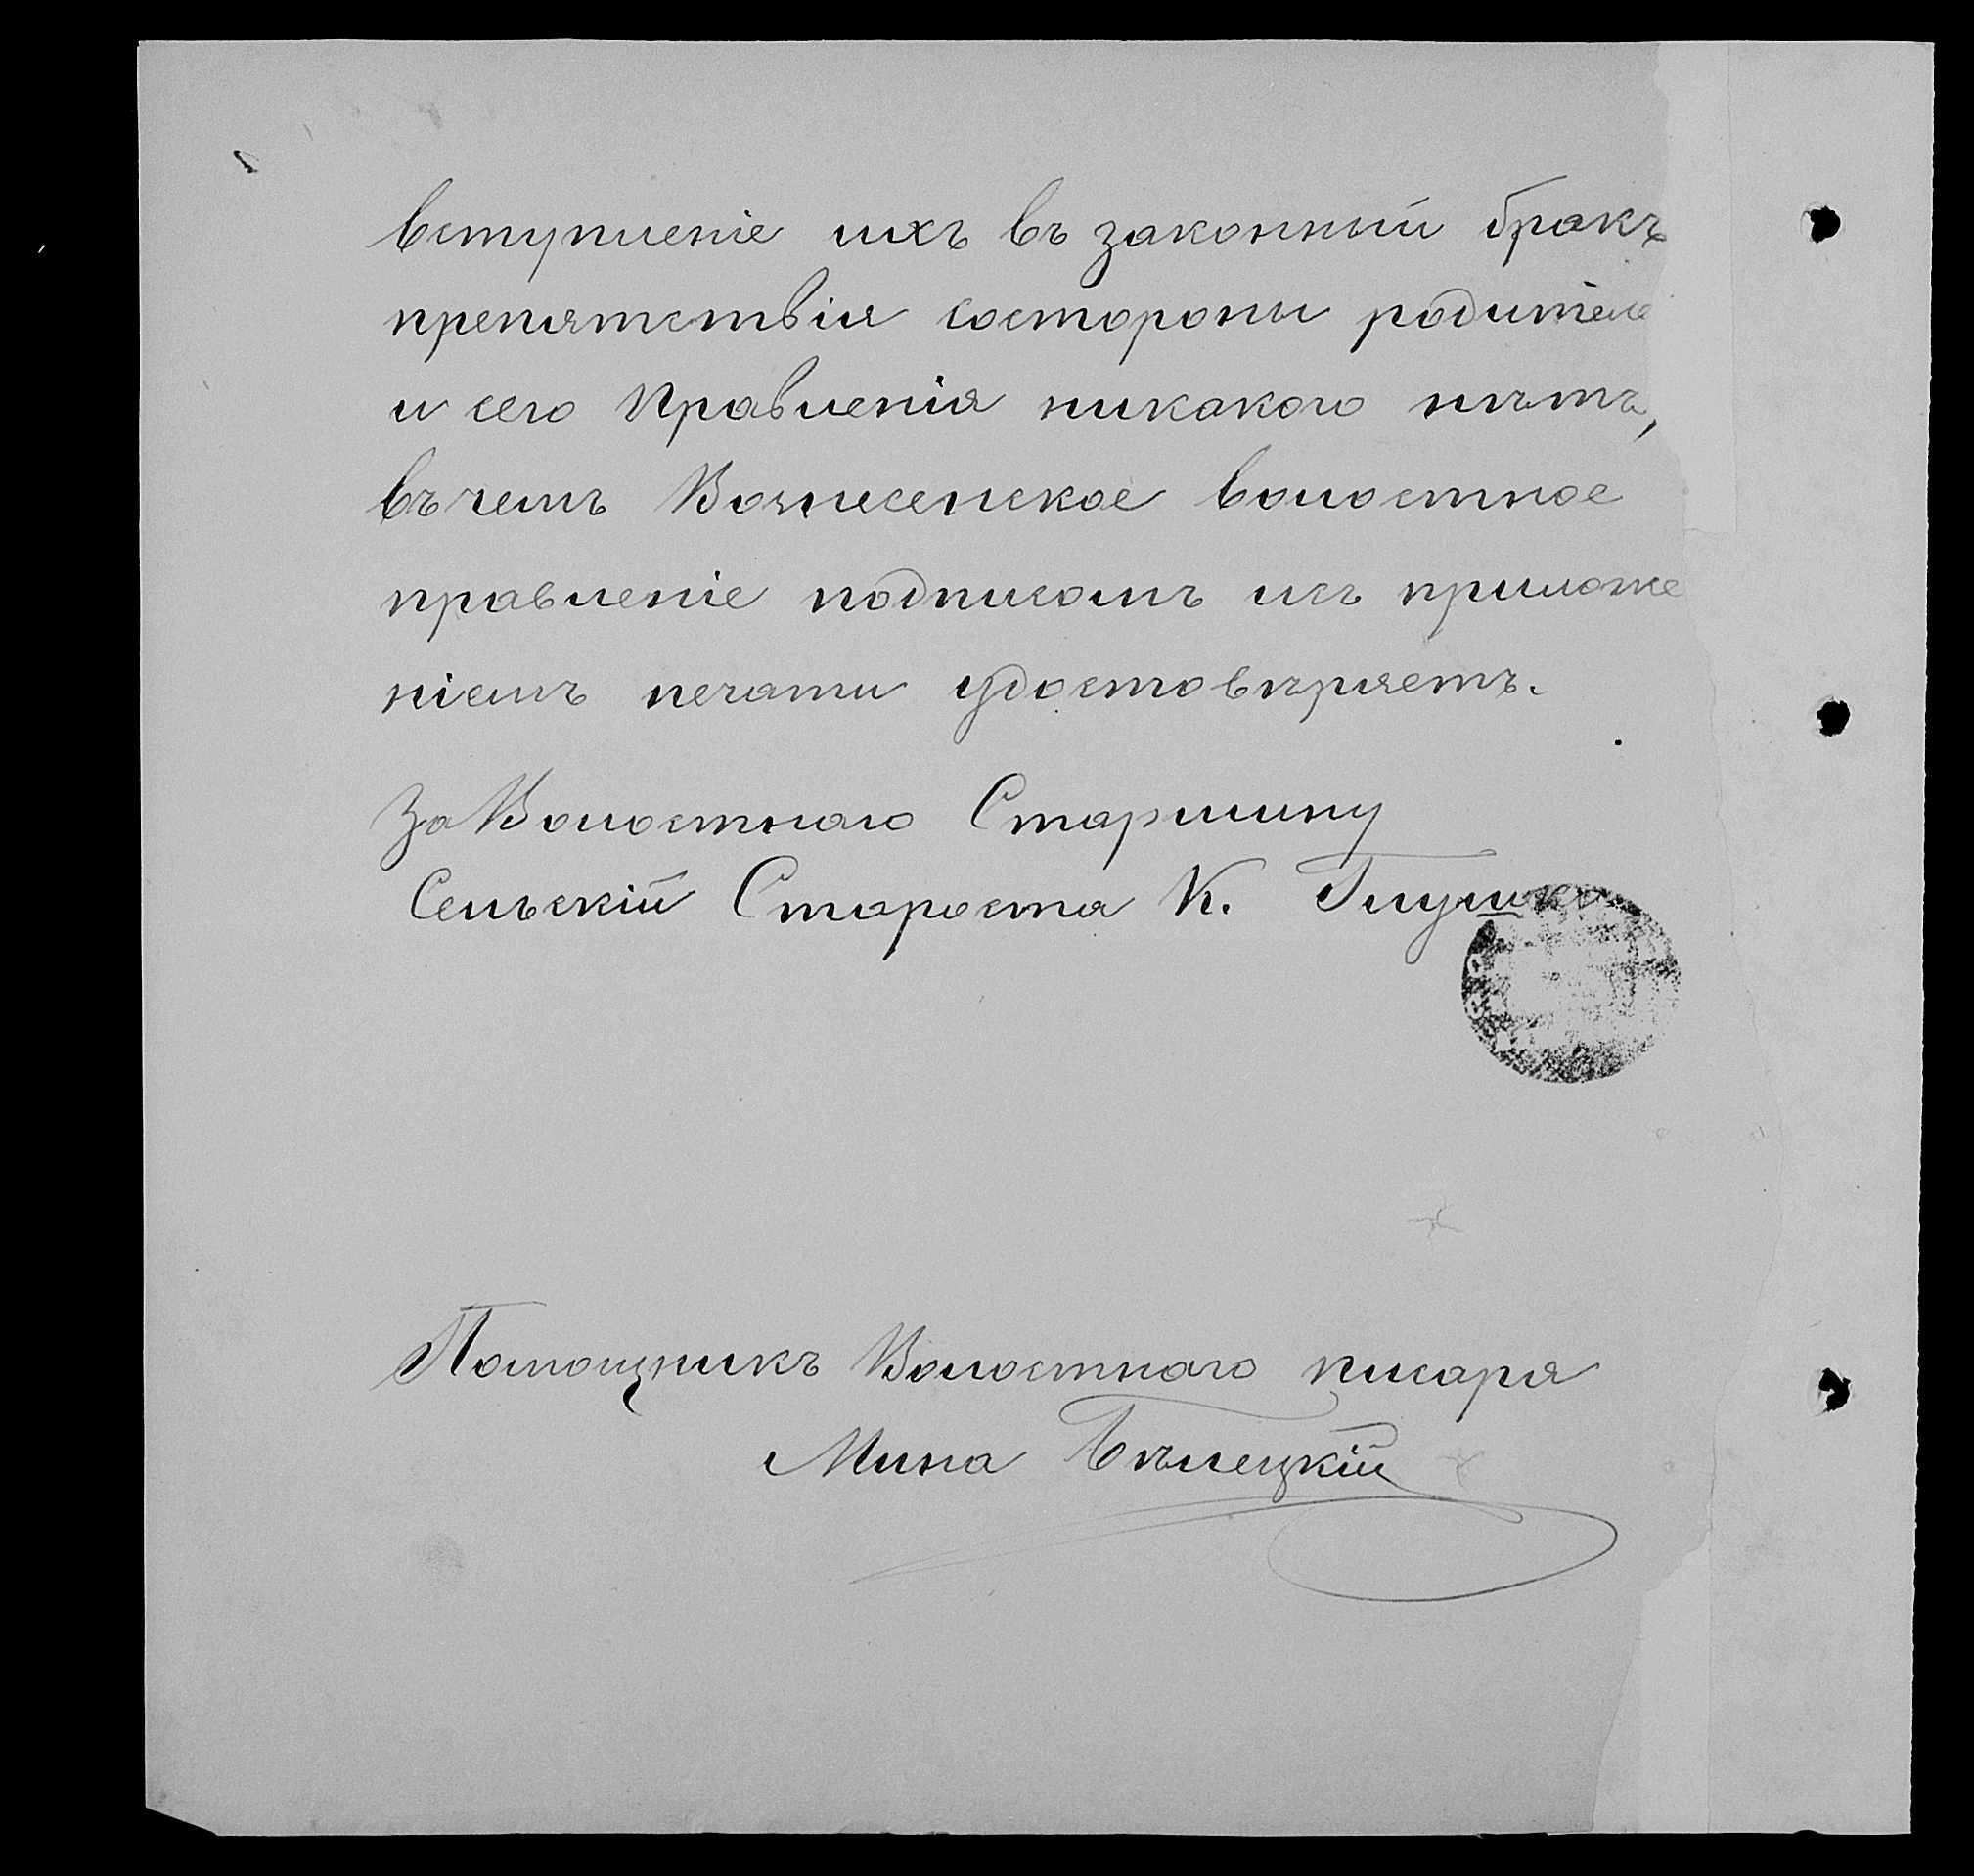 вступленіе ихъ въ законный бракъ
препятствія состороны родителе
и сего Правленія никакого нѣтъ,
въ чемъ Вознесенское волостное
правленіе подписомъ исъ приложе
ніемъ печати удостовѣряетъ.
За Волостнаго Старшину
Сельскій Староста К. Глушко
Помощникъ Волостнаго писаря
Мина Бѣлецкій